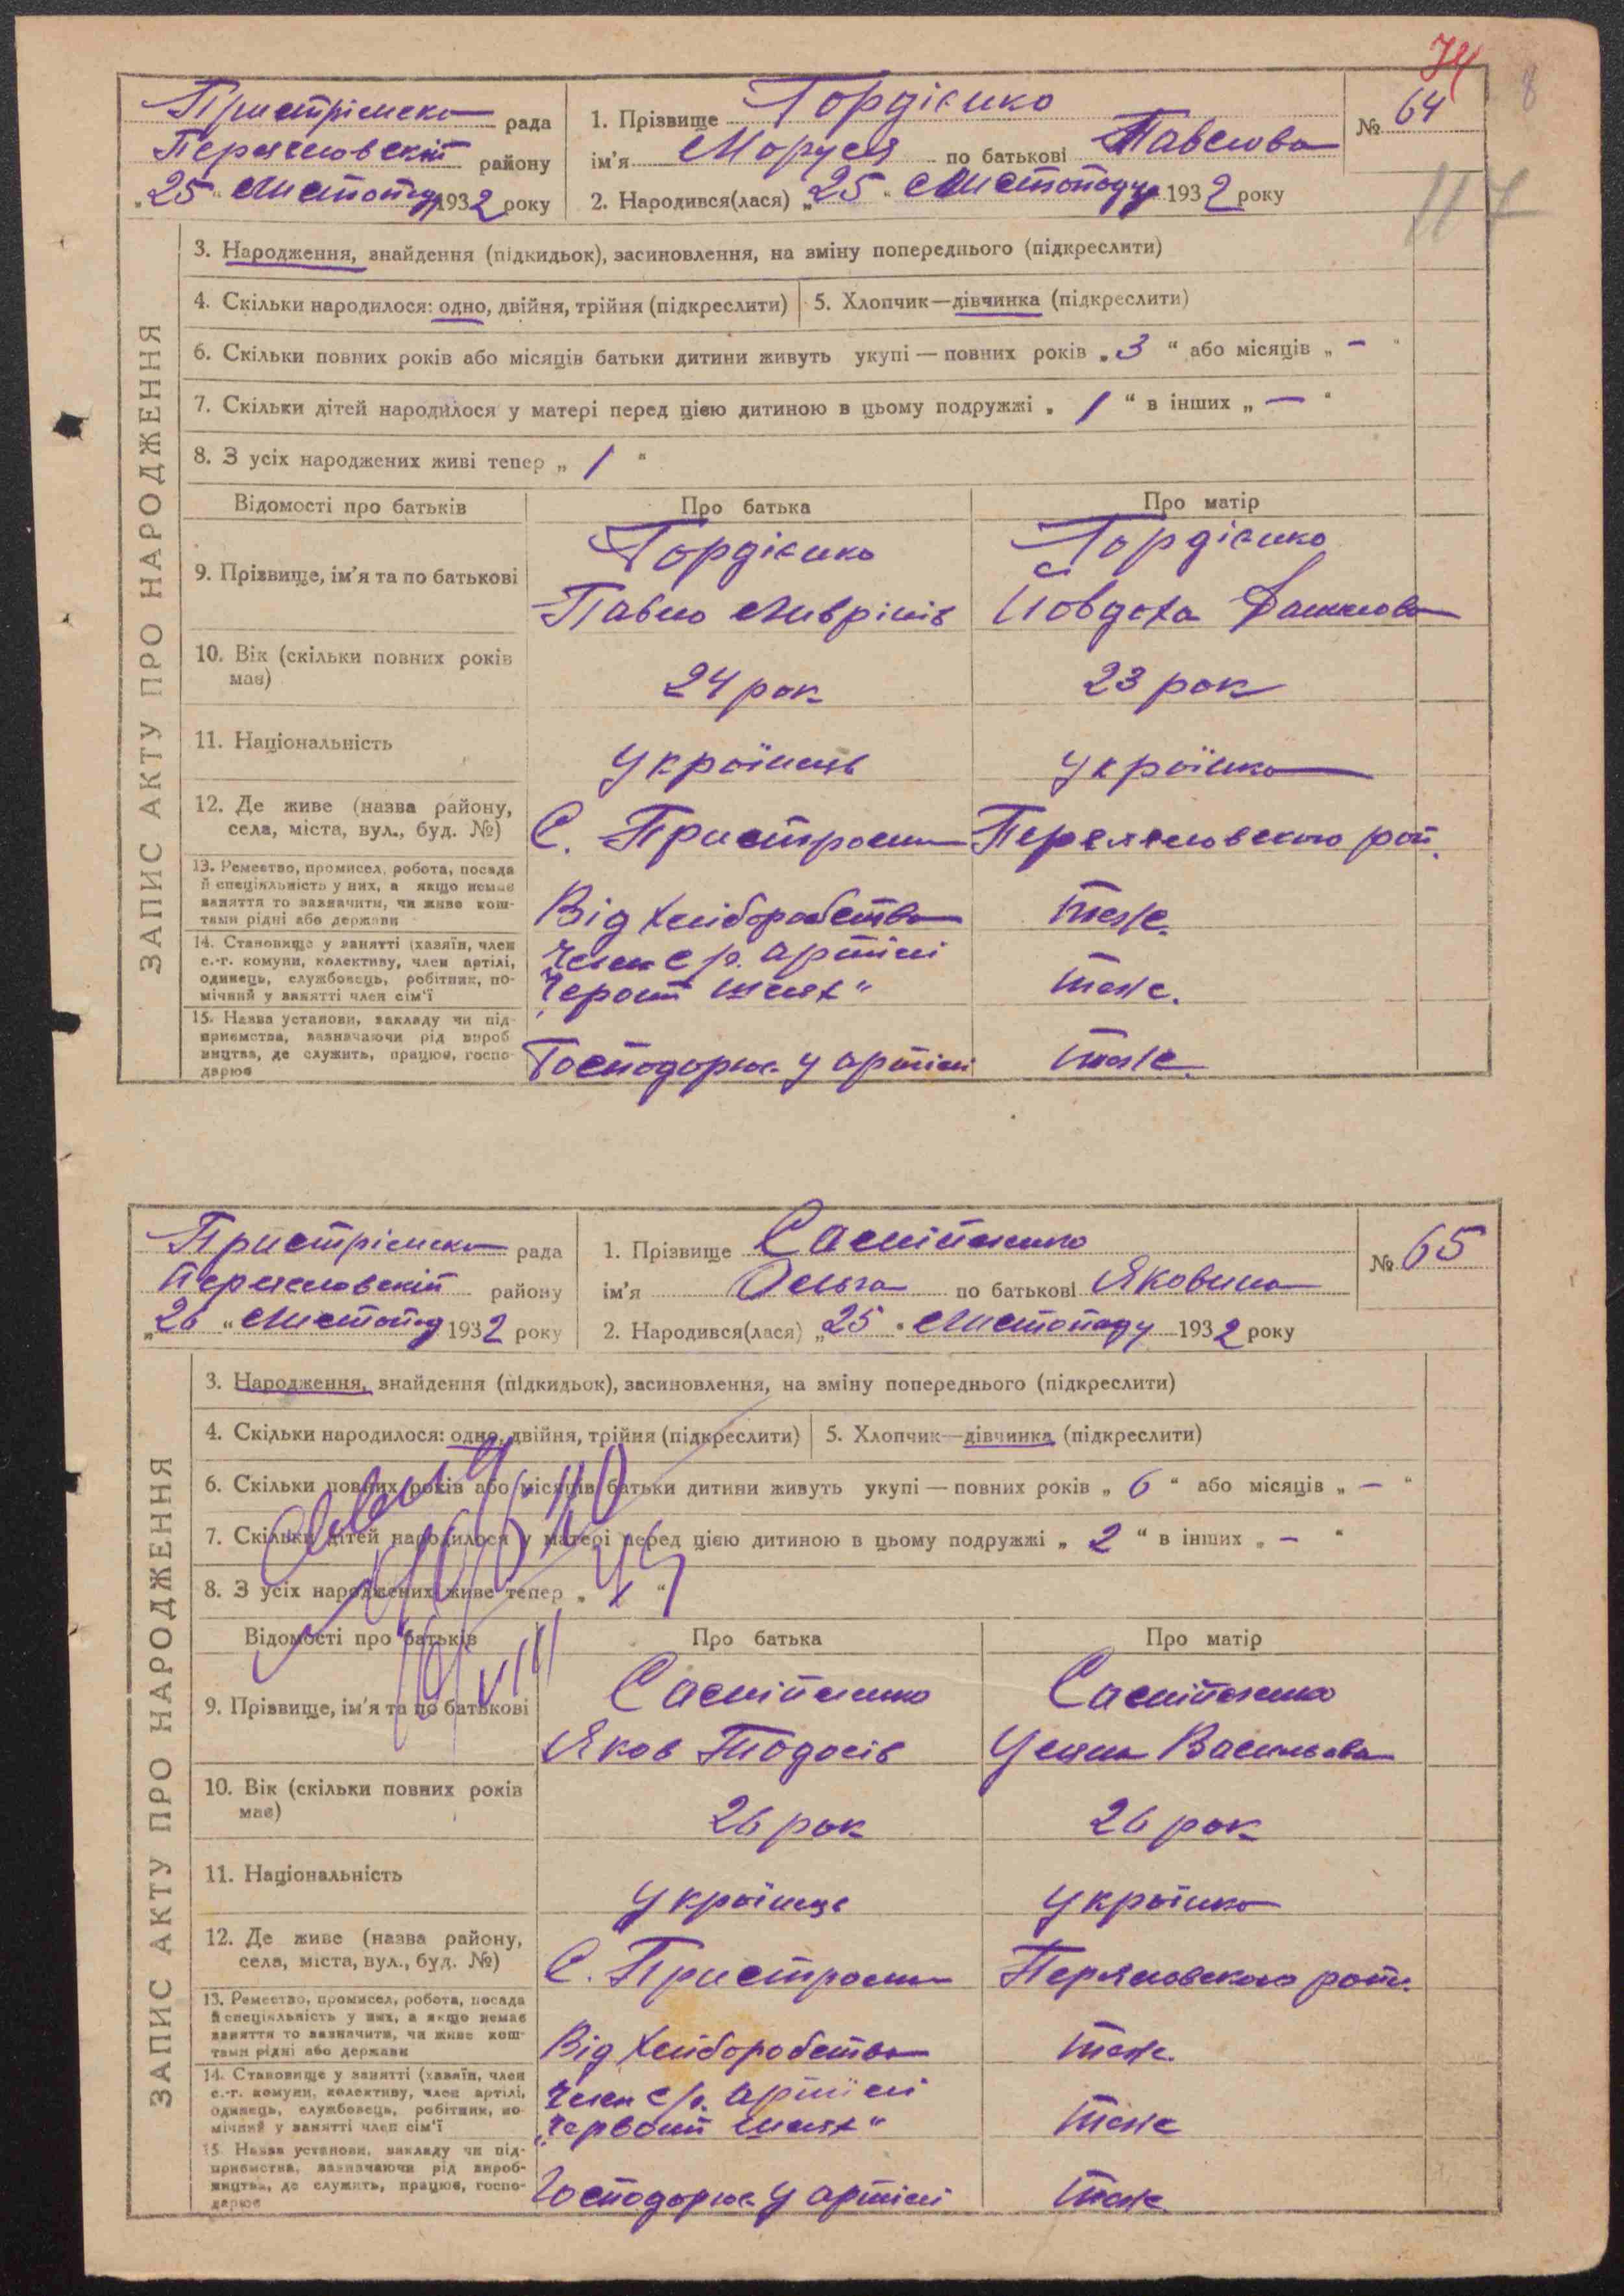 74
8
Пристрімська рада
Переяславській району
„25“ Листопаду 1932 року
1. Прізвище Гордієнко
ім'я Маруся по батькові Павлова
2. Народився(лася) „25“ Листопаду 1932 року
№ 64
117
ЗАПИС АКТУ ПРО НАРОДЖЕННЯ
3. Народження, знайдення (підкидьок), засиновлення, на зміну попереднього (підкреслити)
4. Скільки народилося: одно, двійня, трійня (підкреслити)
5. Хлопчик—дівчинка (підкреслити)
6. Скільки повних років або місяців батьки дитини живуть укупі — повних років „3“ або місяців „—“
7. Скільки дітей народилося у матері перед цією дитиною в цьому подружжі „1“ в інших „—“
8. З усіх народжених живі тепер „1“
Відомості про батьків
Про батька
Про матір
9. Прізвище, ім'я та по батькові
Гордієнко
Гордієнко
Павло
Йовдоха
10. Вік (скільки повних років
має)
24 рок
23 рок
11. Національність
Українець
Українка
12. Де живе (назва району,
села, міста, вул., буд. №)
С. Пристроми Переяславського рай.
13. Ремество, промисел, робота, посада
й спеціяльність у них, а якщо немає
заняття то зазначити, чи живе кош-
тами рідні або держави
Від хліборобства
теж.
14. Становище у занятті (хазяїн, член
с.-г. комуни, колективу, член артілі,
одинець, службовець, робітник, по-
мічний у занятті член сім'ї
Член с/г. артілі
„Червоний шлях“
теж.
15. Назва установи, закладу чи під-
приємства, зазначаючи рід вироб
ництва, де служить, працює, госпо-
дарює
Господарює у артілі
теж.
Пристрімська рада
Переяславській району
„26“ Листопад 1932 року
1. Прізвище
ім'я Ольга по батькові Яковина
2. Народився(лася) „25“ Листопаду 1932 року
№ 65
ЗАПИС АКТУ ПРО НАРОДЖЕННЯ
3. Народження, знайдення (підкидьок), засиновлення, на зміну попереднього (підкреслити)
4. Скільки народилося: одно, двійня, трійня (підкреслити)
5. Хлопчик—дівчинка (підкреслити)
6. Скільки повних років або місяців батьки дитини живуть укупі — повних років „6“ або місяців „—“
7. Скільки дітей народилося у матері перед цією дитиною в цьому подружжі „2“ в інших „—“
8. З усіх народжених живе тепер
Відомості про батьків
Про батька
Про матір
9. Прізвище, ім'я та по батькові
Яков Тодосів
Уляна Васильова
10. Вік (скільки повних років
має)
26 рок
26 рок
11. Національність
Українець
Українка
12. Де живе (назва району,
села, міста, вул., буд. №)
С. Пристроми Переяславського рай.
13. Ремество, промисел, робота, посада
й спеціяльність у них, а якщо немає
заняття то зазначити, чи живе кош-
тами рідні або держави
Від хліборобства
теж.
14. Становище у занятті (хазяїн, член
с.-г. комуни, колективу, член артілі,
одинець, службовець, робітник, по-
мічний у занятті член сім'ї
Член с/г. артілі
„Червоний шлях“
теж
15. Назва установи, закладу чи під-
приємства, зазначаючи рід вироб-
ництва, де служить, працює, госпо-
дарює
Господарює у артілі
теж